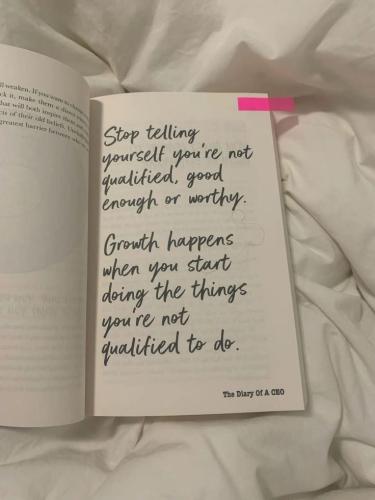 weaken. If you want to
k it, make them a direct
that will both inspire them
cts of their old beliefs.
greatest barrier between who
Stop telling
yourself you're not
qualified, good
enough or worthy.
Growth happens
when you start
doing the things
you're not
qualified to do.
The Diary Of A CEO